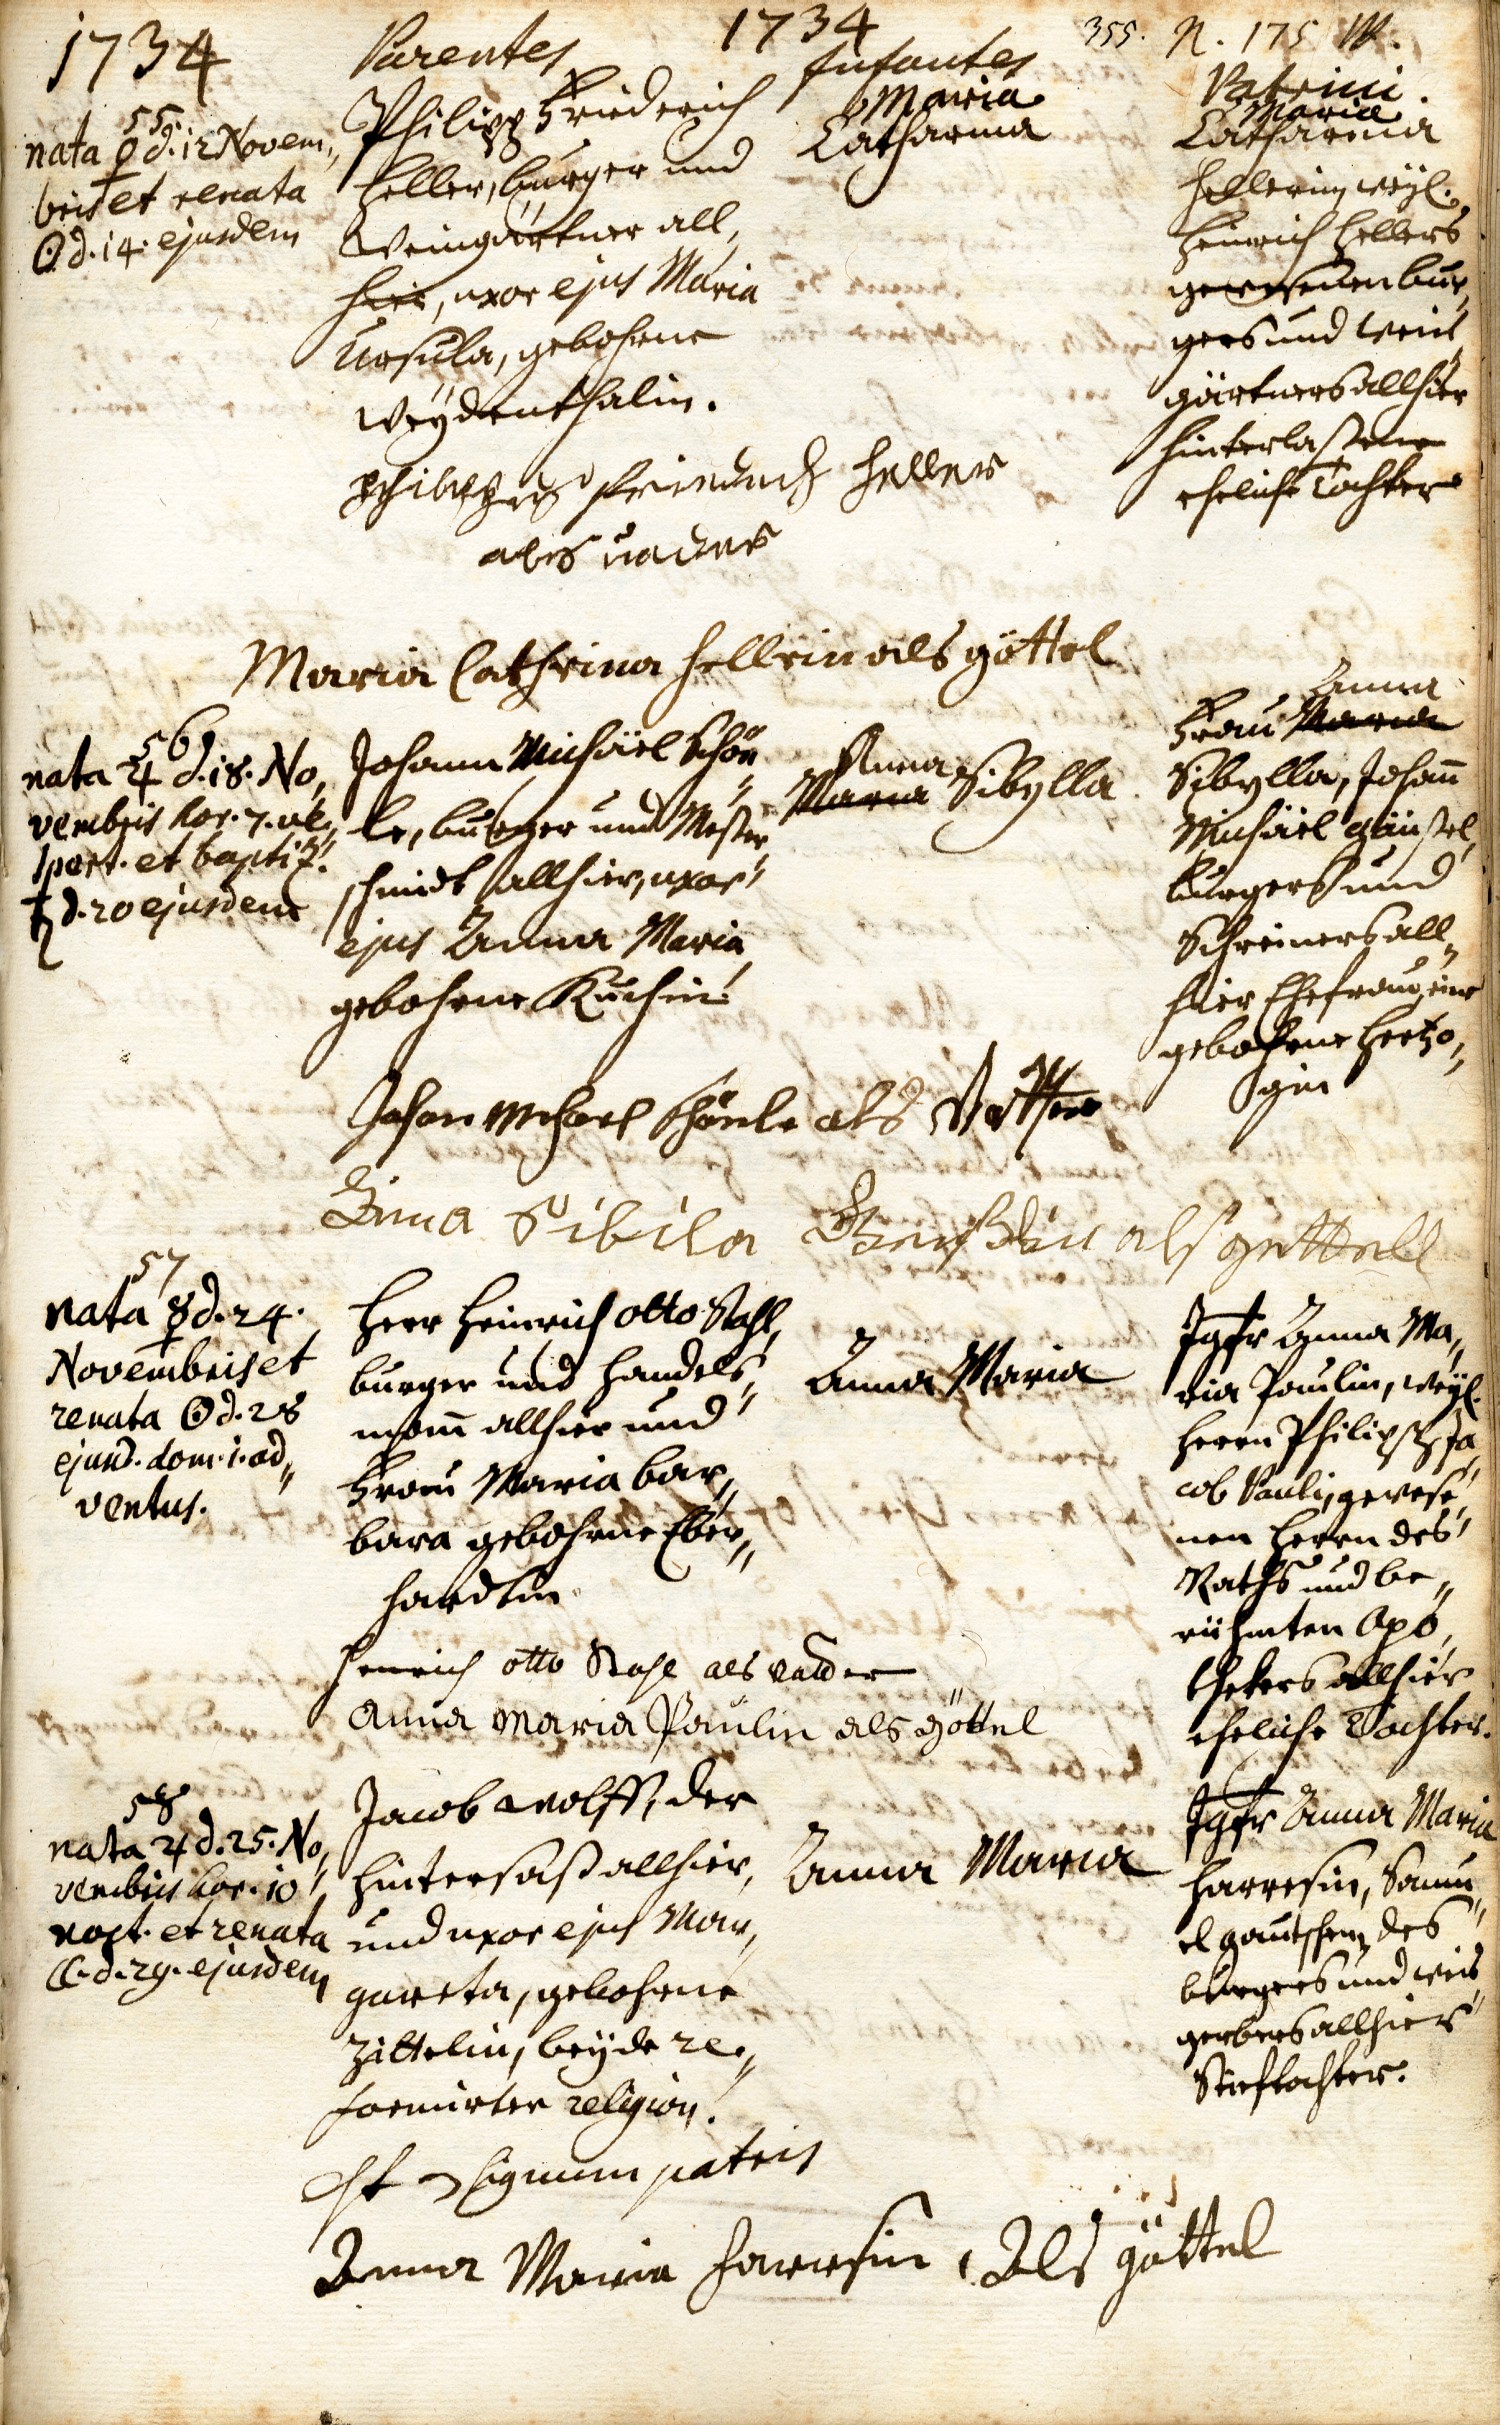 1734
1734
355. N. 175 W.
Parentes
Infantes
Patrini.
55.
nata ♀ d. 12 Novem„
bris et renata
☉ d. 14. ejusdem
Philipp Friederich
Heller, burger und
Weingärtner all„
hier, uxor ejus Maria
Ursula, gebohrne
Weÿdenthalin.
Maria
Catharina
Maria
Catharina
Hellerin, weÿl.
Heinrich Hellers
gewesenen bur„
gers und Wein„
gärtners allhier
hinterlaßene
eheliche Tochter
Friedrich Heller
als vader
Maria Cathrina Hellrin als göttel
56.
nata ♃ d. 18. No„
vembris hor. 7. ve„
spert. et baptiz.
♄ d. 20 ejusdem
Johann Michäel Schön„
le, burger und Meßer„
schmidt allhier, uxor
ejus Anna Maria
gebohrne Küchin.
Anna
Maria Sibylla
Anna
Frau Maria
Sibylla, Johann
Michäel Gänßel,
burgers und
Schreiners all„
hier Ehefrau, eine
gebohrne Hertzo„
gin
Johan Michael Schönle als Vatter
Anna Sibila als gettell
57
nata ☿ d. 24.
Novembris et
renata ☉ d. 28
ejusd. dom. 1. ad„
ventus.
Herr Heinrich Otto Stahl,
burger und Handels„
mann allhier und
Frau Maria Bar„
bara gebohrne Eber„
hardtin
Anna Maria
Jgfr Anna Ma„
ria Paulin, weÿl.
Herrn Philipp Ja„
cob Pauli, gewese„
nen Herrn des
Raths und be„
rühmten Apo„
thekers allhier
eheliche Tochter.
Henrich Otto Stahl als vatder
Anna Maria Paulin als göttel
58
nata ♃ d. 25. No„
vembris hor. 10
noct. et renata
☾ d. 29. ejusdem
Jacob Wolff, der
Hintersaß allhier,
und uxor ejus Mar„
gareta, gebohrne
Zittelin, beÿde re„
formirter religion.
Anna Maria
Jgfr Anna Maria
Harresin, Samu„
el des
burgers und weis„
gerbers allhier
Stieftochter.
signum patris
Anna Maria Harresin, Als göttel